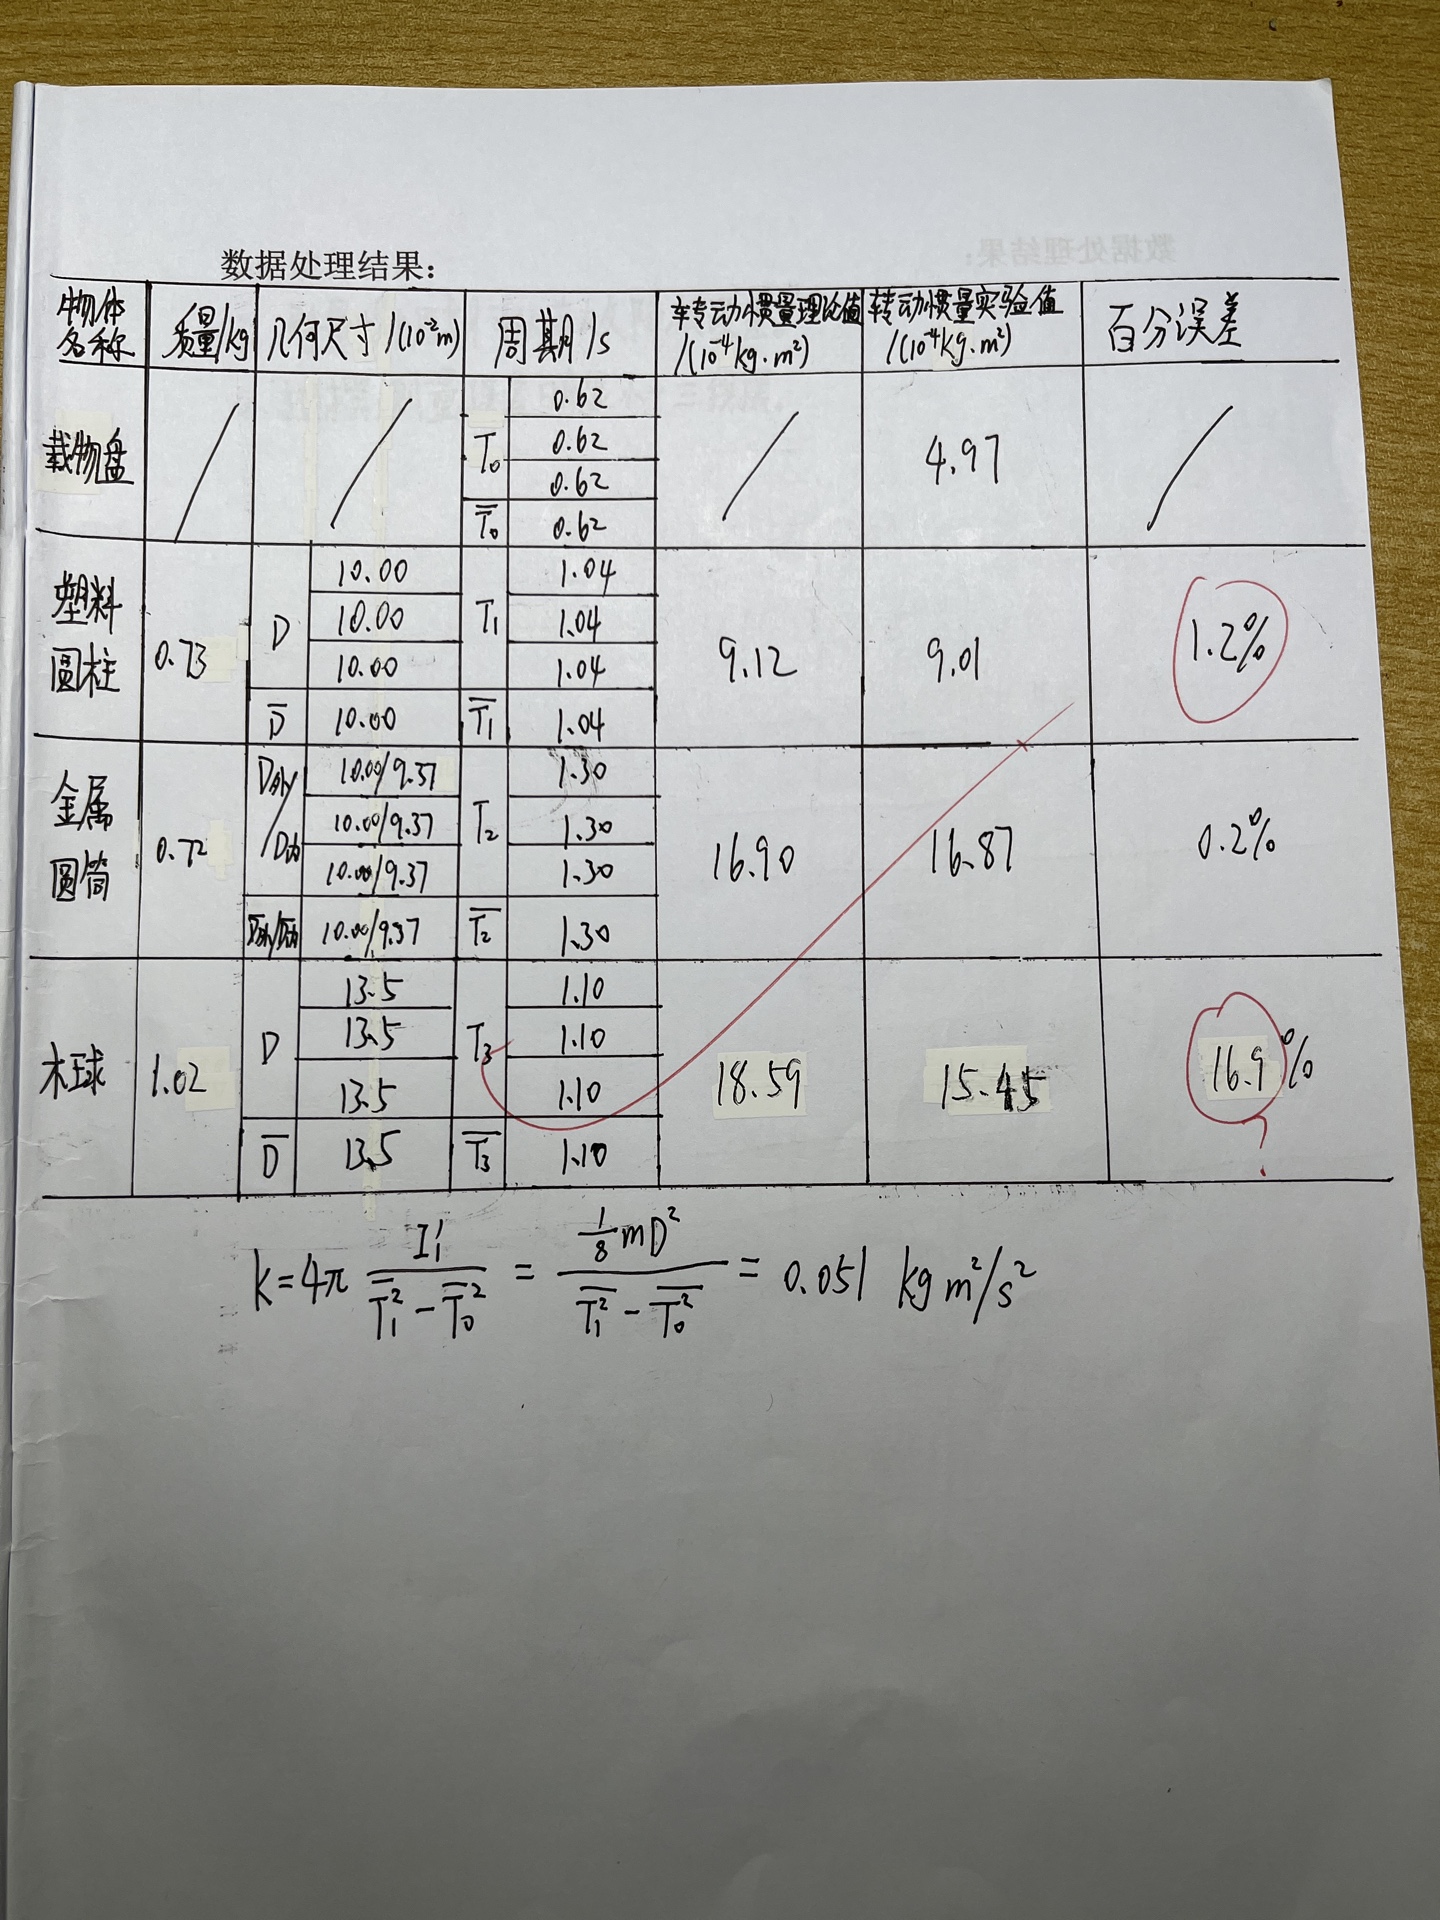 数据处理结果：
物体名称 质量/kg 几何尺寸/(10⁻²m) 周期/s 转动惯量理论值/(10⁻⁴kg·m²) 转动惯量实验值/(10⁻⁴kg·m²) 百分误差
载物盘 / / T₀ 0.62 / 4.97 /
0.62
0.62
T̄₀ 0.62
塑料圆柱 0.73 D 10.00 T₁ 1.04 9.12 9.01 1.2%
10.00 1.04
10.00 1.04
D̄ 10.00 T̄₁ 1.04
金属圆筒 0.72 D外/D内 10.00/9.37 T₂ 1.30 16.90 16.87 0.2%
10.00/9.37 1.30
10.00/9.37 1.30
D̄外/D̄内 10.00/9.37 T̄₂ 1.30
木球 1.02 D 13.5 T₃ 1.10 18.59 15.45 16.9%
13.5 1.10
13.5 1.10
D̄ 13.5 T̄₃ 1.10
?
k=4π I₁′/(T̄₁²-T̄₀²) = ⅛mD²/(T̄₁²-T̄₀²) = 0.051 kg m²/s²